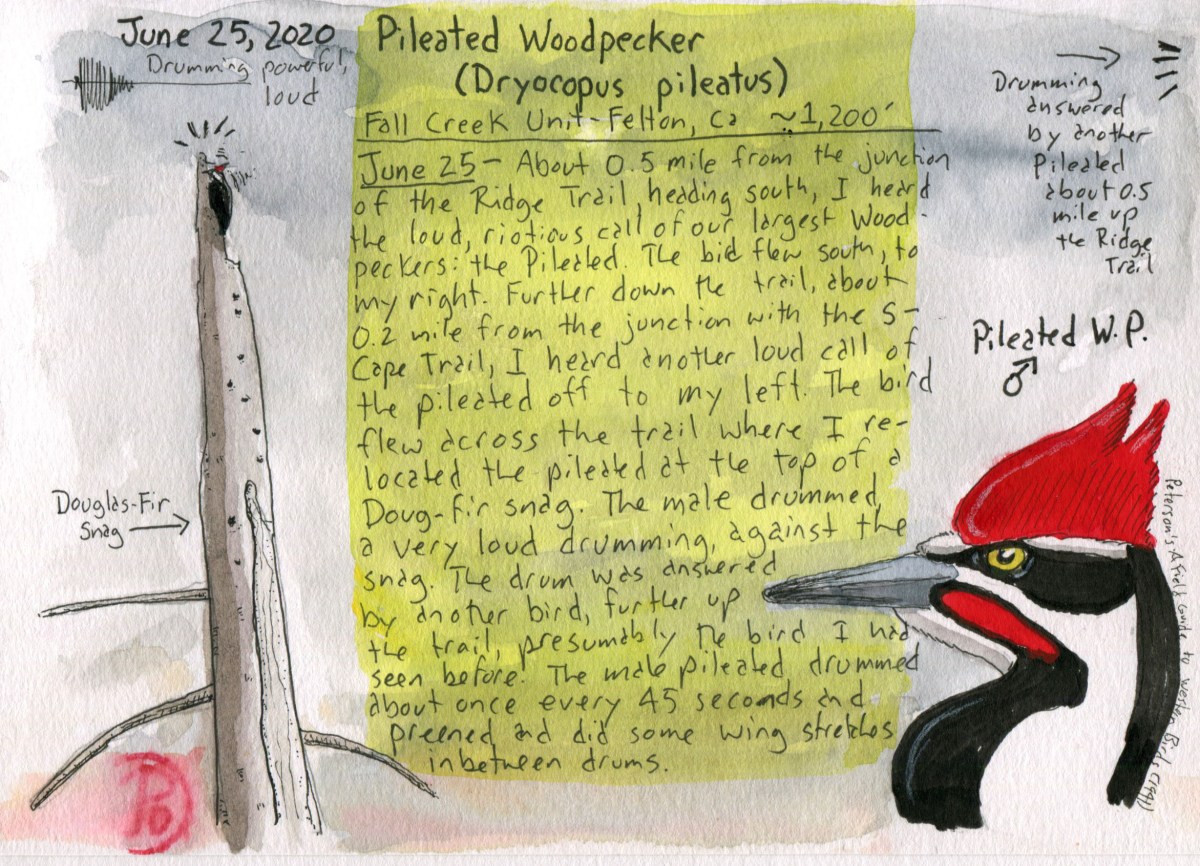 June 25, 2020
Drumming powerful,
loud
Pileated Woodpecker
(Dryocopus pileatus)
Fall Creek Unit-Felton, Ca ~1,200'
June 25 - About 0.5 mile from the junction
of the Ridge Trail, heading south, I heard
the loud, riotious call of our largest Wood-
peckers: the Pileated. The bid flew south, to
my right. Further down the trail, about
0.2 mile from the junction with the S-
Cape Trail, I heard another loud call of
the pileated off to my left. The bird
flew across the trail where I re-
located the pileated at the top of a
Doug-fir snag. The male drummed,
a very loud drumming, against the
snag. The drum was answered
by another bird, further up
the trail, presumably the bird I had
seen before. The male pileated drummed
about once every 45 seconds and
preened and did some wing stretches
inbetween drums.
Drumming
answered
by another
Pileated
about 0.5
mile up
the Ridge
Trail
Pileated W.P.
♂
Douglas-Fir
Snag
Peterson's A Field Guide to western Birds (1990)
Po